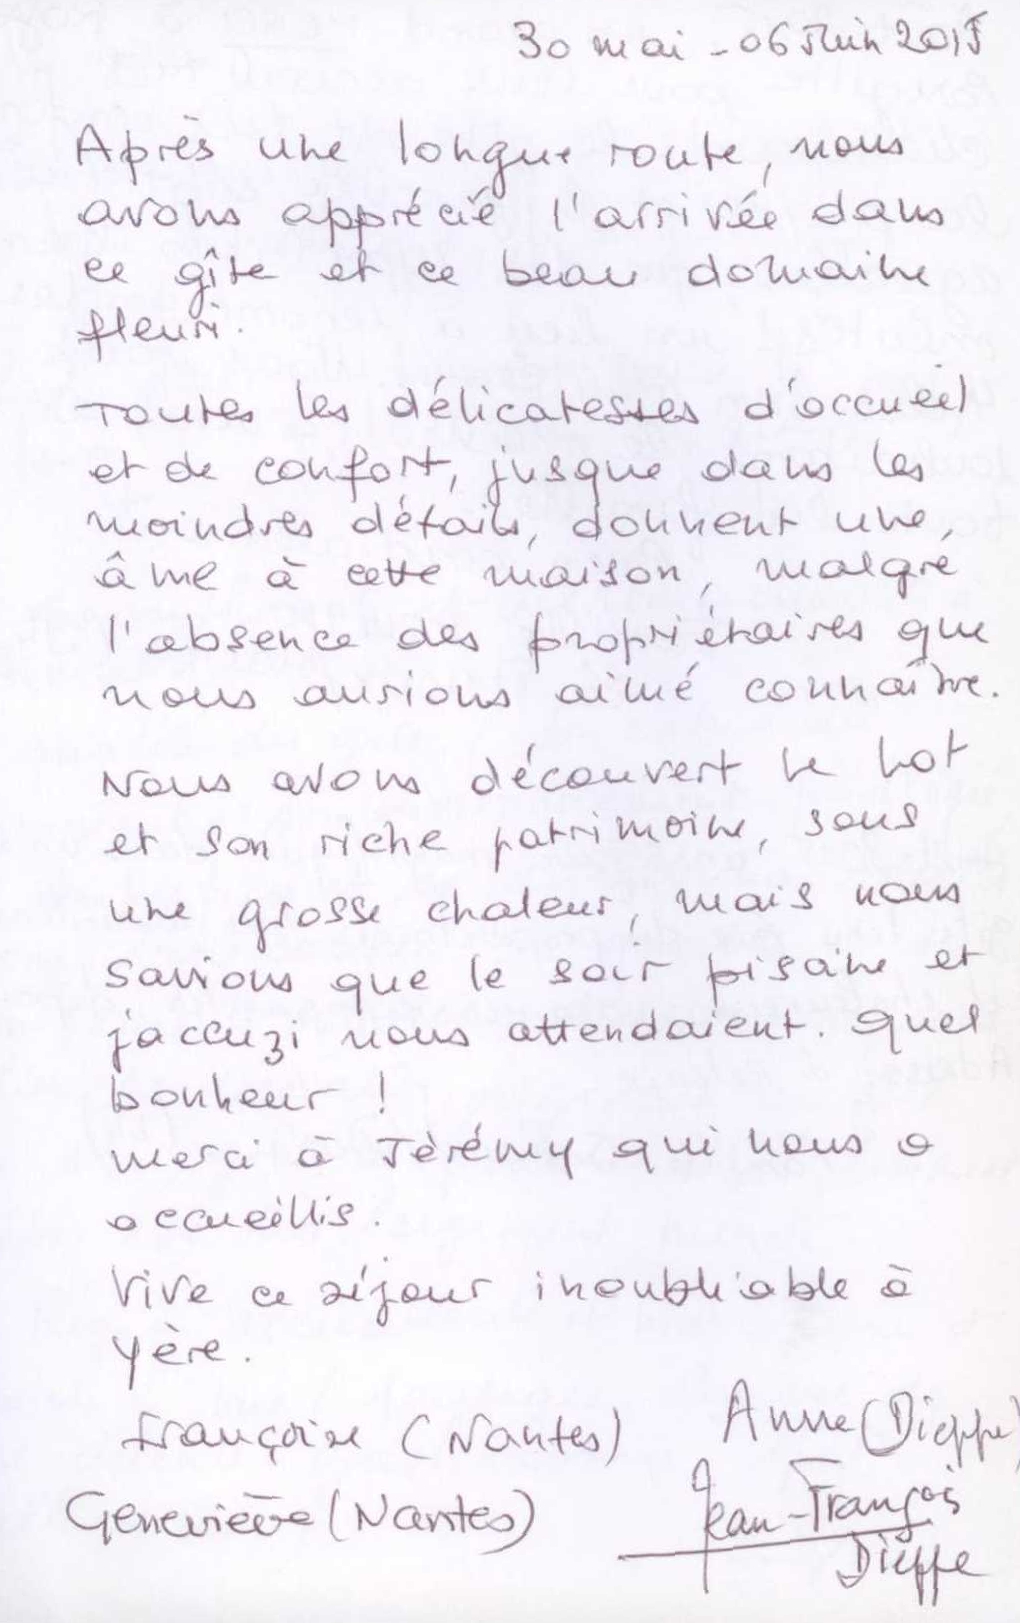 30 mai - 06 Juin 2015
Après une longue route, nous
avons apprécié l'arrivée dans
ce gîte et ce beau domaine
fleuri.
Toutes les délicatesses d'accueil
et de confort, jusque dans les
moindres détails, donnent une
âme à cette maison, malgré
l'absence des propriétaires que
nous aurions aimé connaître.
Nous avons découvert le Lot
et son riche patrimoine, sous
une grosse chaleur, mais nous
savions que le soir piscine et
jaccuzi nous attendaient. Quel
bonheur !
merci à Jérémy qui nous a
accueillis.
Vive ce séjour inoubliable à
Yère.
Françoise (Nantes) Anne (Dieppe)
Geneviève (Nantes) Jean-François
Dieppe